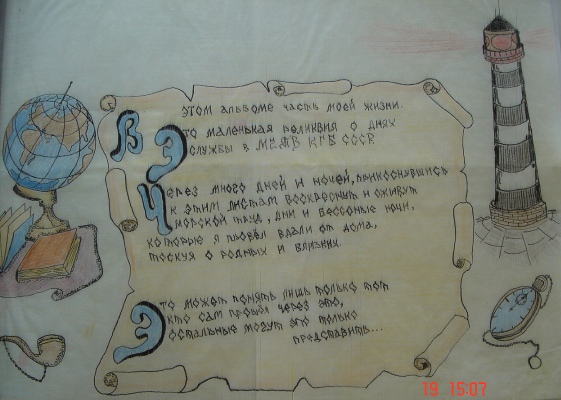 В этом альбоме часть моей жизни.
Это маленькая реликвия о днях
службы в МСПВ КГБ СССР
Через много дней и ночей, прикоснувшись
к этим листам воскреснут и оживут
морской труд, дни и бессоные ночи,
которые я провёл вдали от дома,
тоскуя о родных и близких.
Это может понять лишь только тот
кто сам прошёл через это,
остальные могут это только
представить...
19 15:07